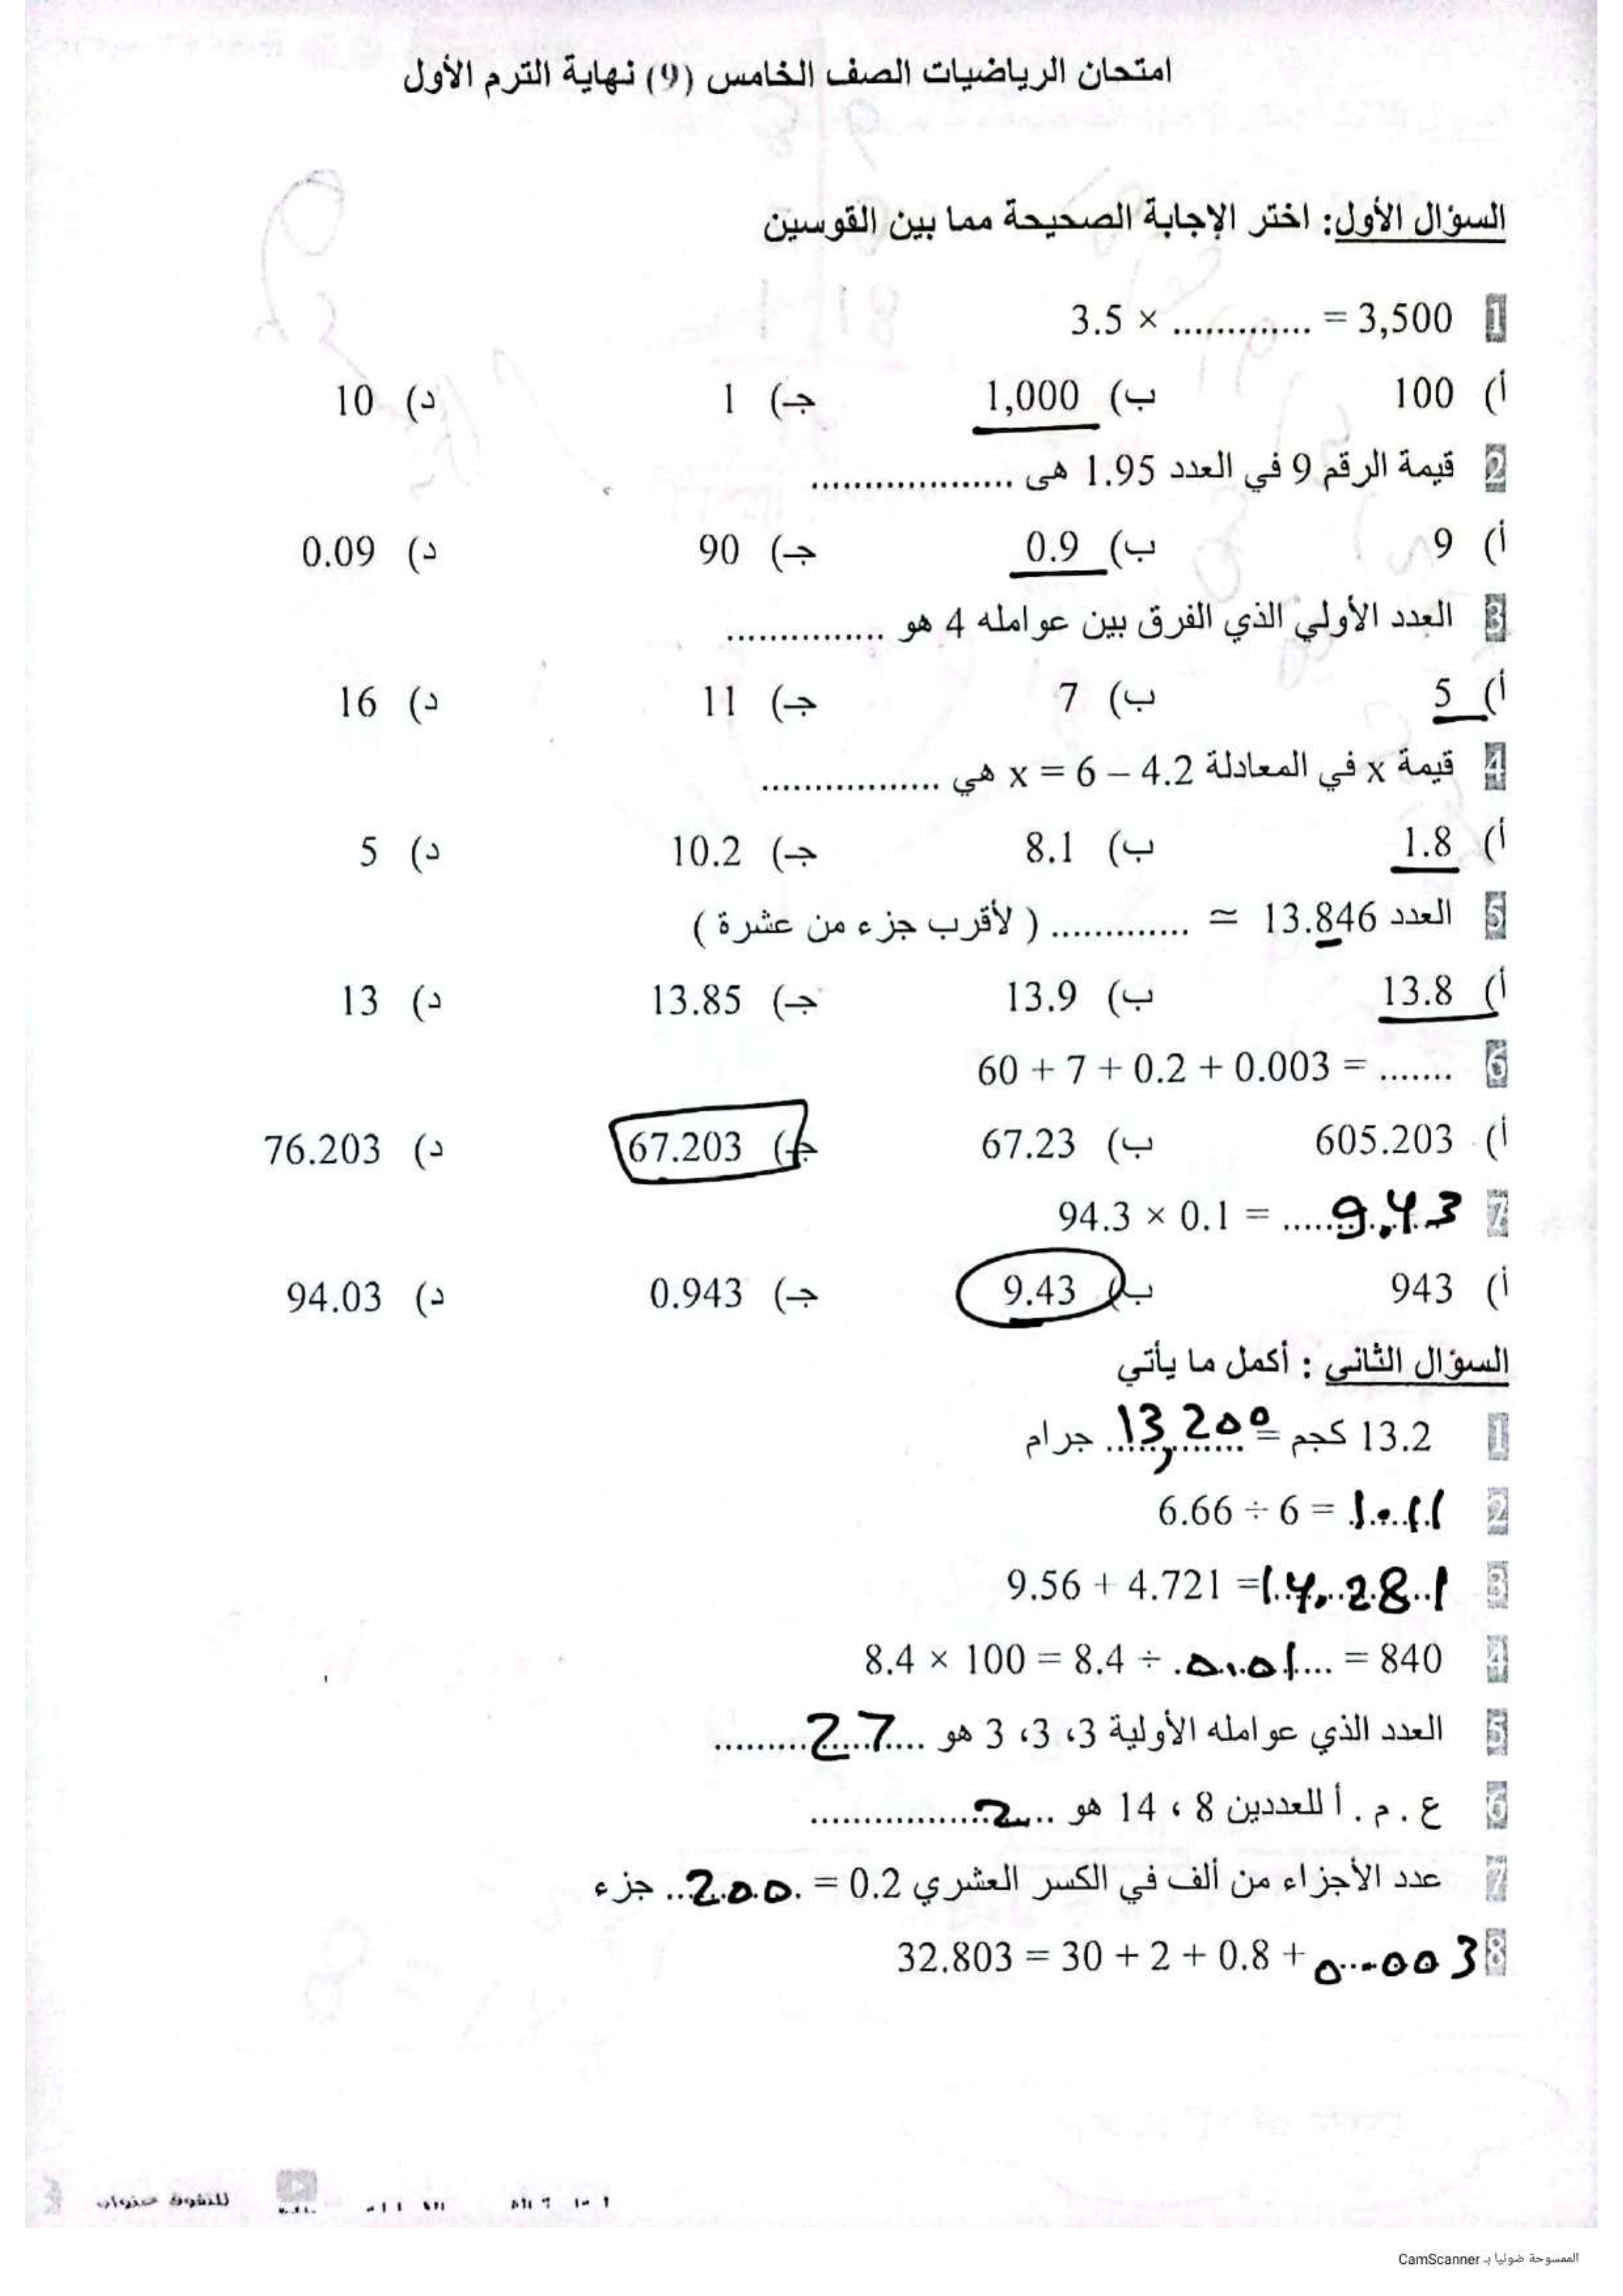 امتحان الرياضيات الصف الخامس (9) نهاية الترم الأول
السؤال الأول: اختر الإجابة الصحيحة مما بين القوسين
1 3.5 × ............. = 3,500
أ) 100 ب) 1,000 جـ) 1 د) 10
2 قيمة الرقم 9 في العدد 1.95 هى ...................
أ) 9 ب) 0.9 جـ) 90 د) 0.09
3 العدد الأولي الذي الفرق بين عوامله 4 هو ...............
أ) 5 ب) 7 جـ) 11 د) 16
4 قيمة x في المعادلة x = 6 – 4.2 هي .................
أ) 1.8 ب) 8.1 جـ) 10.2 د) 5
5 العدد 13.846 ≃ ............. ( لأقرب جزء من عشرة )
أ) 13.8 ب) 13.9 جـ) 13.85 د) 13
6 60 + 7 + 0.2 + 0.003 = .......
أ) 605.203 ب) 67.23 جـ) 67.203 د) 76.203
7 94.3 × 0.1 = 9.43
أ) 943 ب) 9.43 جـ) 0.943 د) 94.03
السؤال الثانى : أكمل ما يأتي
1 13.2 كجم = 13,200 جرام
2 6.66 ÷ 6 = 1.11
3 9.56 + 4.721 = 14.281
4 8.4 × 100 = 8.4 ÷ 0.01 = 840
5 العدد الذي عوامله الأولية 3، 3، 3 هو 27
6 ع . م . أ للعددين 8 ، 14 هو 2
7 عدد الأجزاء من ألف في الكسر العشري 0.2 = 200 جزء
8 32.803 = 30 + 2 + 0.8 + 0.003
للتفوق عنوان
الممسوحة ضوئيا بـ CamScanner